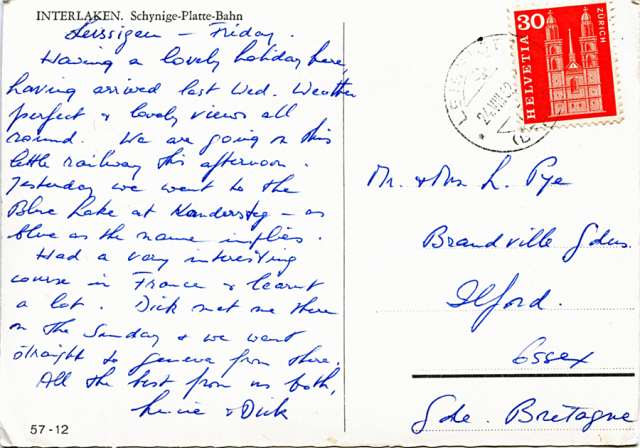 INTERLAKEN. Schynige-Platte-Bahn
Leissigen – Friday.
Having a lovely holiday here,
having arrived last Wed. Weather
perfect & lovely views all
round. We are going on this
little railway this afternoon.
Yesterday we went to the
Blue Lake at Kandersteg – as
blue as the name implies.
Had a very interesting
course in France & learnt
a lot. Dick met me there
on the Sunday & we went
straight to Geneva from there.
All the best from us both,
& Dick
57-12
HELVETIA 30
ZÜRICH
Mr. & Mrs L. Pye
Brandville Gdns.
Ilford.
Essex
Gde. Bretagne